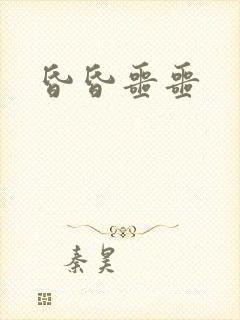 昏昏噩噩
秦昊